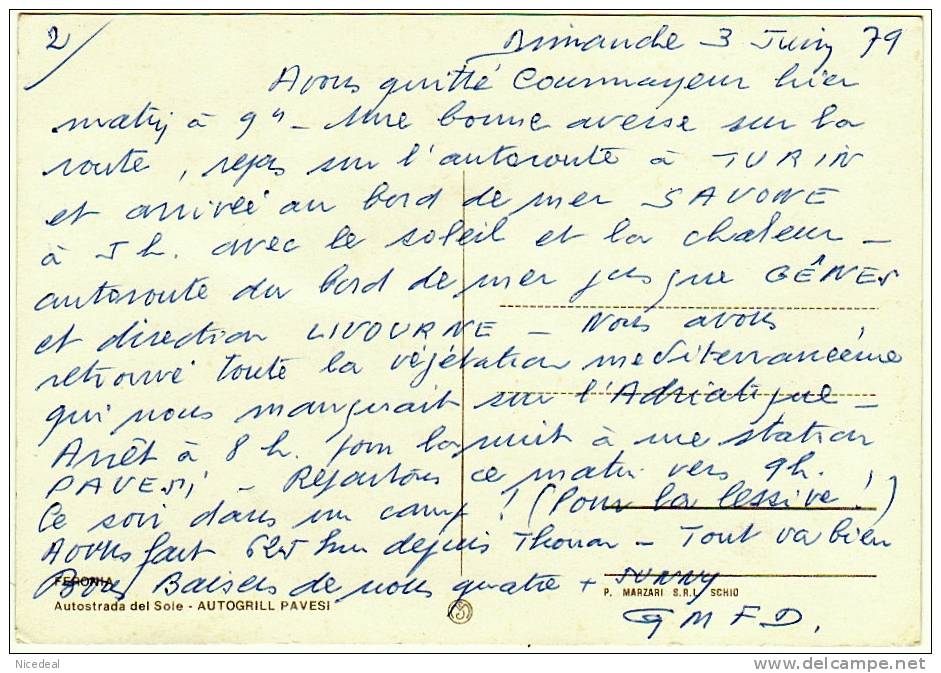 2/ Dimanche 3 Juin 79
Avons quitté Courmayeur hier
matin à 9h - Une bonne averse sur la
route, repas sur l'autoroute à TURIN
et arrivée au bord de mer SAVONE
à 5 h. avec le soleil et la chaleur -
autoroute du bord de mer jusque GÊNES
et direction LIVOURNE - Nous avons
retrouvé toute la végétation mediterrancéenne
qui nous manquait sur l'Adriatique -
Arrêt à 8 h. pour la nuit à une station
PAVESI - Repartons ce matin vers 9h.
Ce soir dans un camp ! (Pour la lessive !)
Avons fait 625 km depuis Thonon - Tout va bien
Bons Baisers de nous quatre + SUNNY
G M F D.
FERONIA
Autostrada del Sole - AUTOGRILL PAVESI
5
P. MARZARI S.R.L. SCHIO
Nicedeal
www.delcampe.net